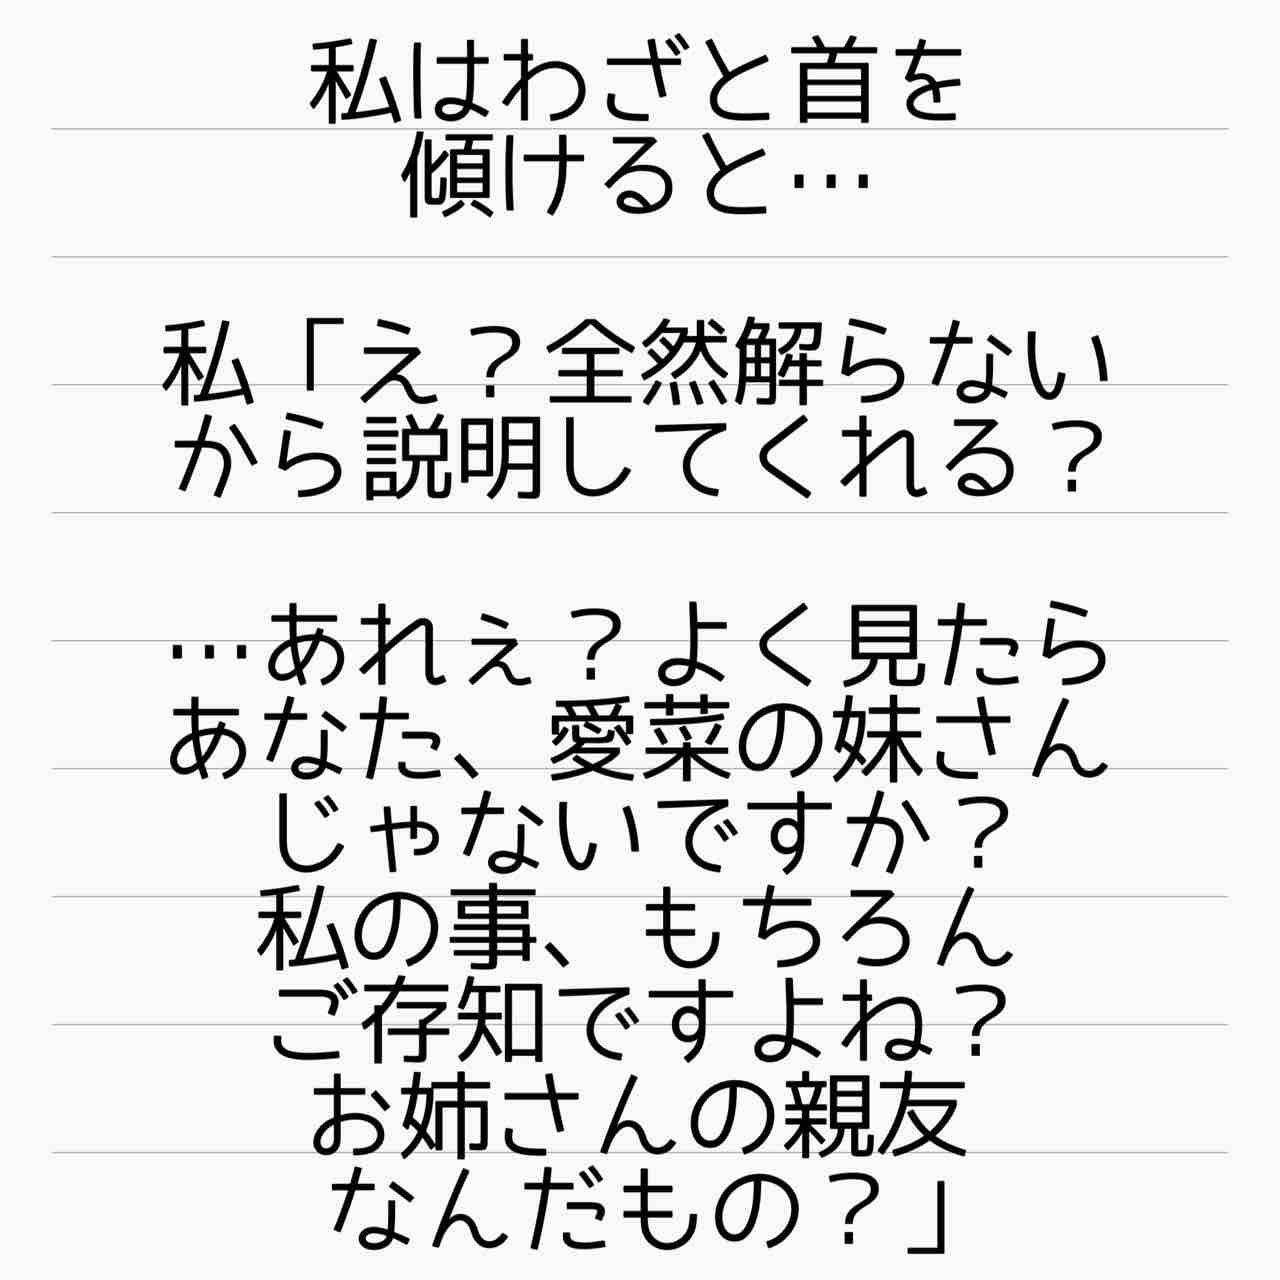 私はわざと首を
傾けると…
私「え？全然解らない
から説明してくれる？
…あれぇ？よく見たら
あなた、愛菜の妹さん
じゃないですか？
私の事、もちろん
ご存知ですよね？
お姉さんの親友
なんだもの？」